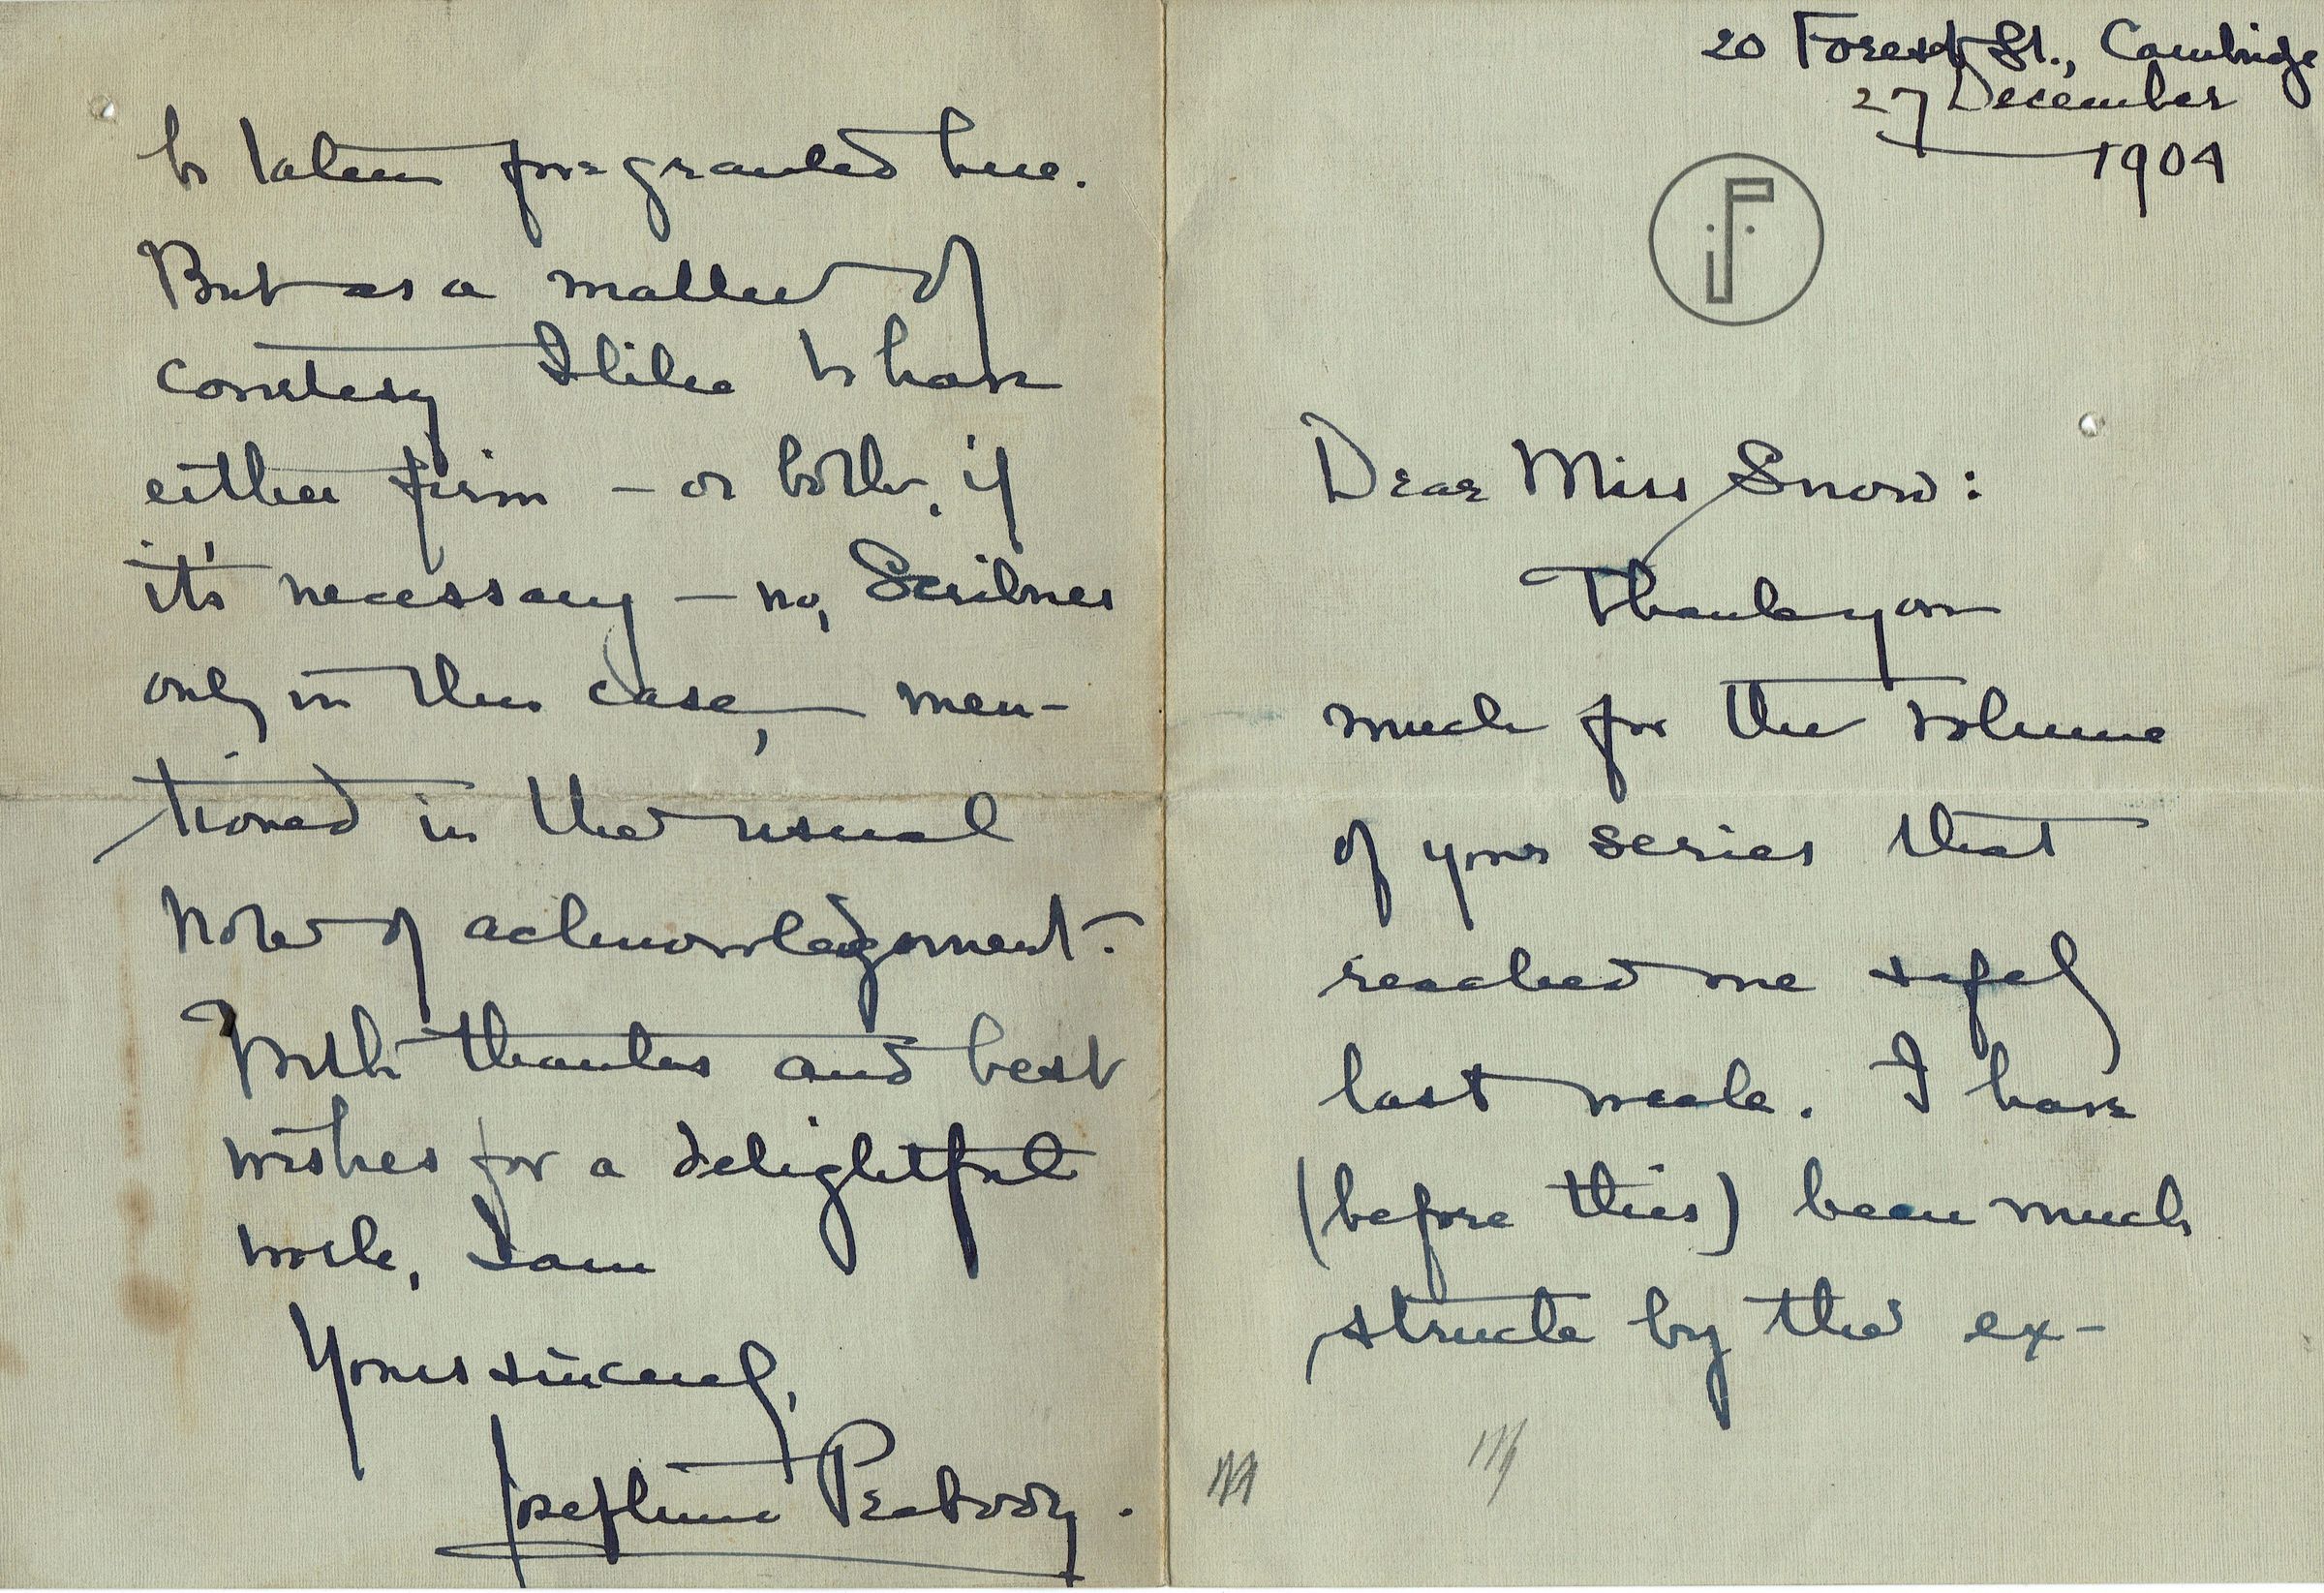 20 Forest St., Cambridge
27 December
1904
JP
Dear Miss Snow:
Thank you
much for the volume
of your series that
reached me safely
last week. I have
(before this) been much
struck by the ex-
taken for granted here.
But as a matter of
courtesy I like to have
either firm – or both, if
it's necessary – no, Scribner
only in this case, – men-
tioned in the usual
note of acknowledgement.
With thanks and best
wishes for a delightful
work, I am
Yours sincerely,
Josephine Peabody.